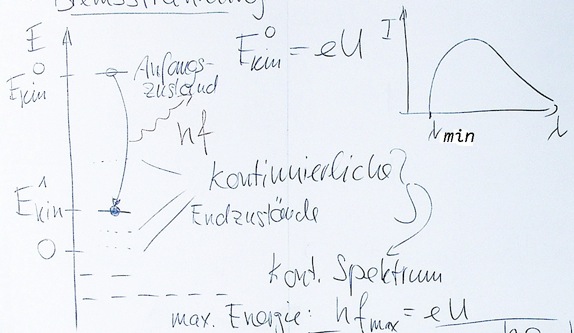 Bremsstrahlung
E
E⁰kin = eU
I
E⁰kin
Anfangs-
zustand
hf
λmin
λ
kontinuierliche
E¹kin
Endzustände
0
kont. Spektrum
max. Energie: hfmax = eU